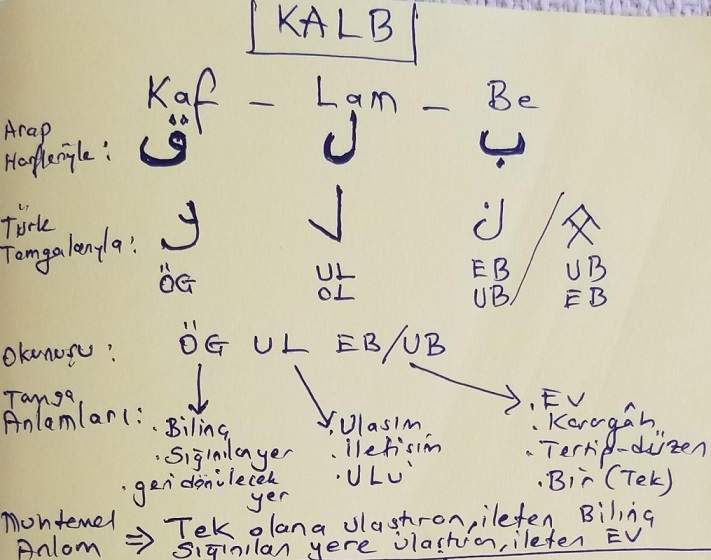 KALB
Kaf - Lam - Be
Arap
Harfleriyle : ق ل ب
Türk
Tamgalarıyla :
ÖG UL EB / UB
OL UB / EB
Okunuşu : ÖG UL EB/UB
Tamga
Anlamları :
. Bilinç . Ulaşım . EV
. Sığınılan yer . iletişim . Karargâh
. geri dönülecek . ULU . Tertip-düzen
yer . Bir (Tek)
Muhtemel ⇒ Tek olana ulaştıran, ileten Bilinç
Anlam Sığınılan yere ulaştıran, ileten EV